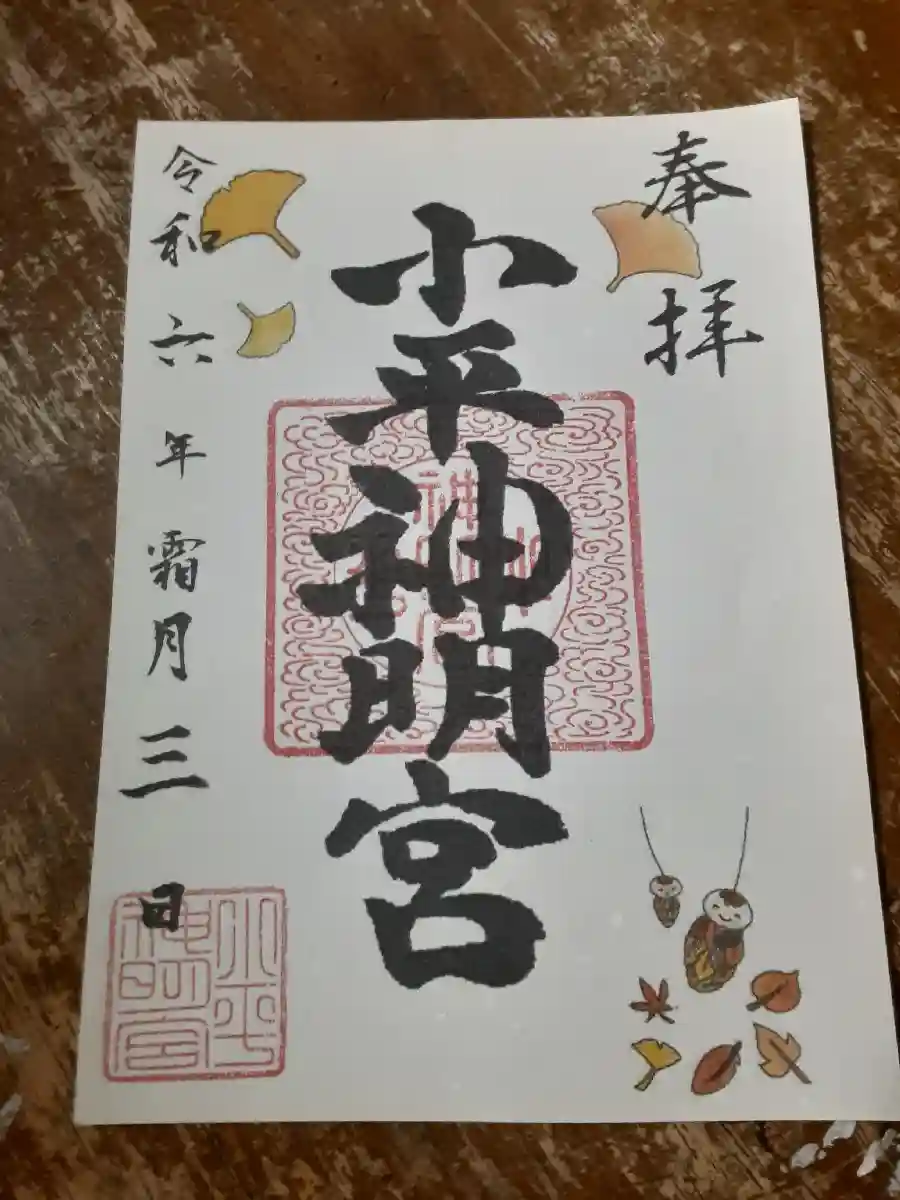 奉拝
小平神明宮
令和六年霜月三日
小平
神明宮